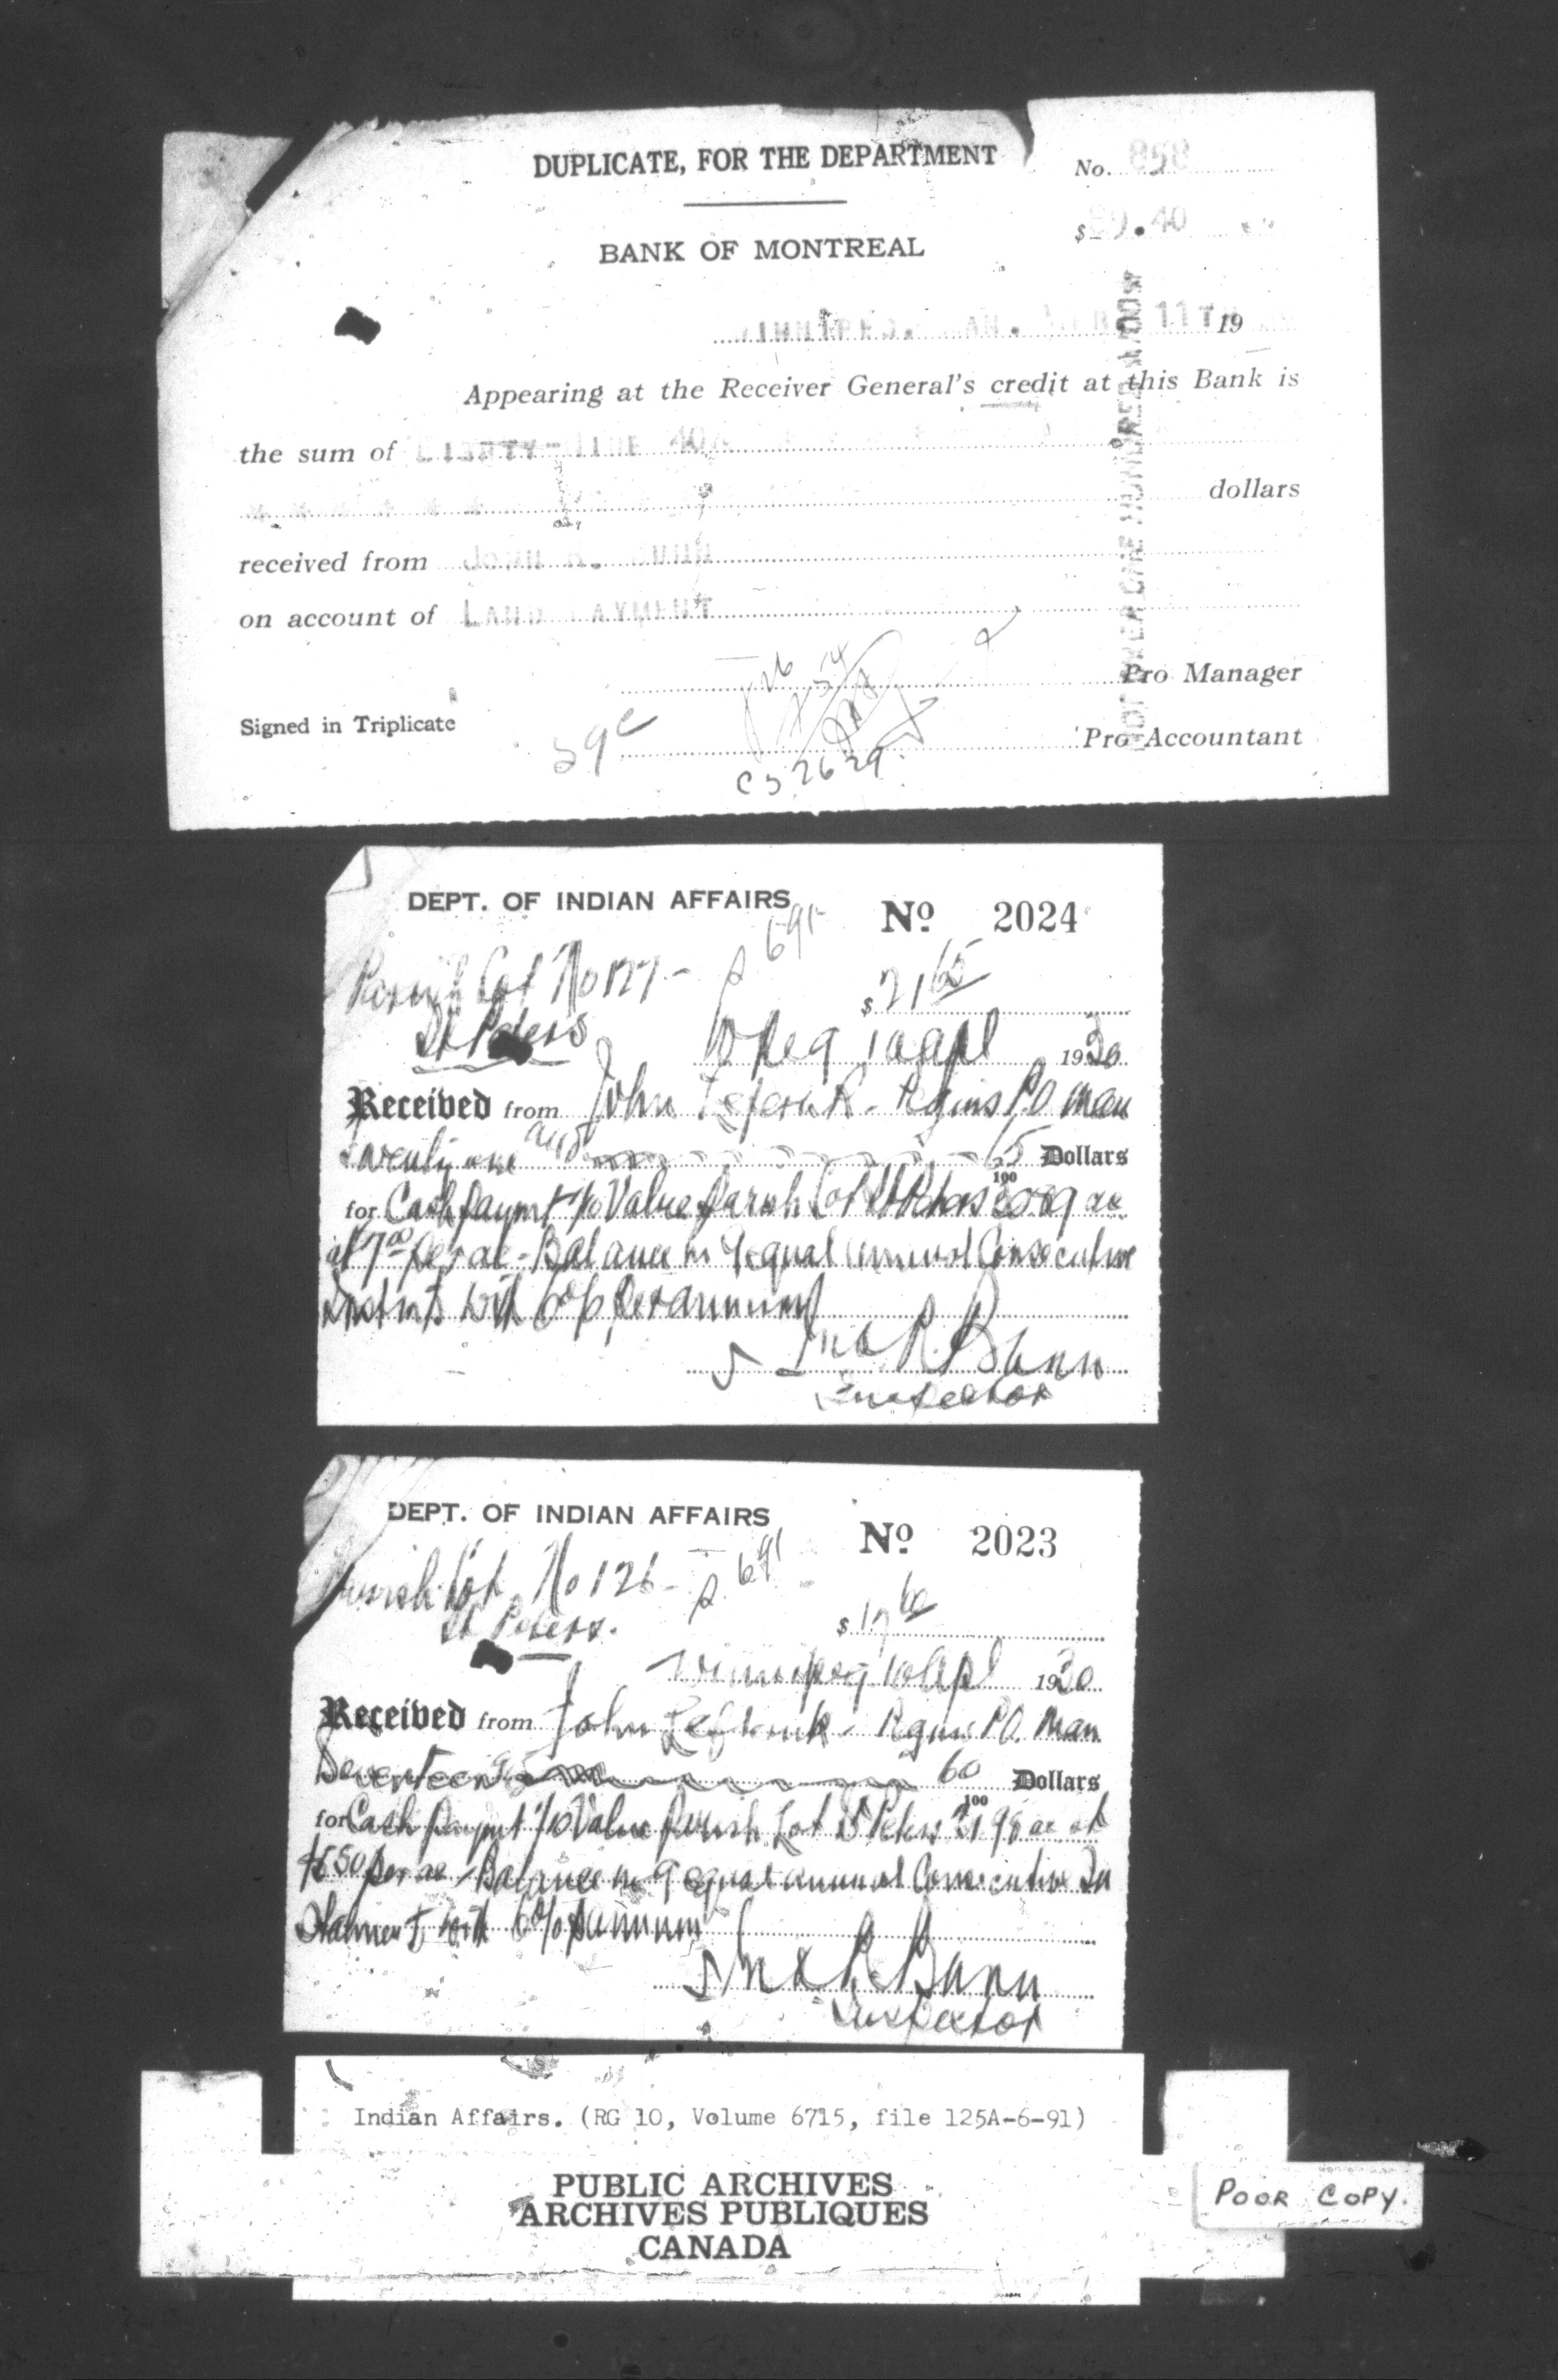 DUPLICATE, FOR THE DEPARTMENT
No. 858
$89.40
BANK OF MONTREAL
WINNIPEG. MAN. 11TH 19
Appearing at the Receiver General's credit at this Bank is
the sum of EIGHTY-NINE 40/
dollars
received from JOHN R. BUNN
on account of LAND PAYMENT
NOT OVER ONE HUNDRED
Pro Manager
Signed in Triplicate
Pro Accountant
DEPT. OF INDIAN AFFAIRS
No 2024
Parish Lot No 127-
$ 21 65
St Peters
Wpeg 10 Apl 1930
Received from John - P.O. Man
Twenty one and 65/100 Dollars
for Cash Paymt 1/10 Value Parish Lot St Peters ac
at 7 00 per ac - Balance in 9 equal annual Consecutive
with 6% per annum
Jno R. Bunn
Inspector
DEPT. OF INDIAN AFFAIRS
No 2023
Parish Lot No 126-
St Peters.
$ 17 60
Winnipeg 10 Apl 1930
Received from John - P.O. Man
Seventeen 60/100 Dollars
for Cash Paymt 1/10 Value Parish Lot St Peters ac at
per ac - Balance in 9 equal annual Consecutive In
stalment with 6% annum
Jno R. Bunn
Inspector
Indian Affairs. (RG 10, Volume 6715, file 125A-6-91)
PUBLIC ARCHIVES
ARCHIVES PUBLIQUES
CANADA
POOR COPY.